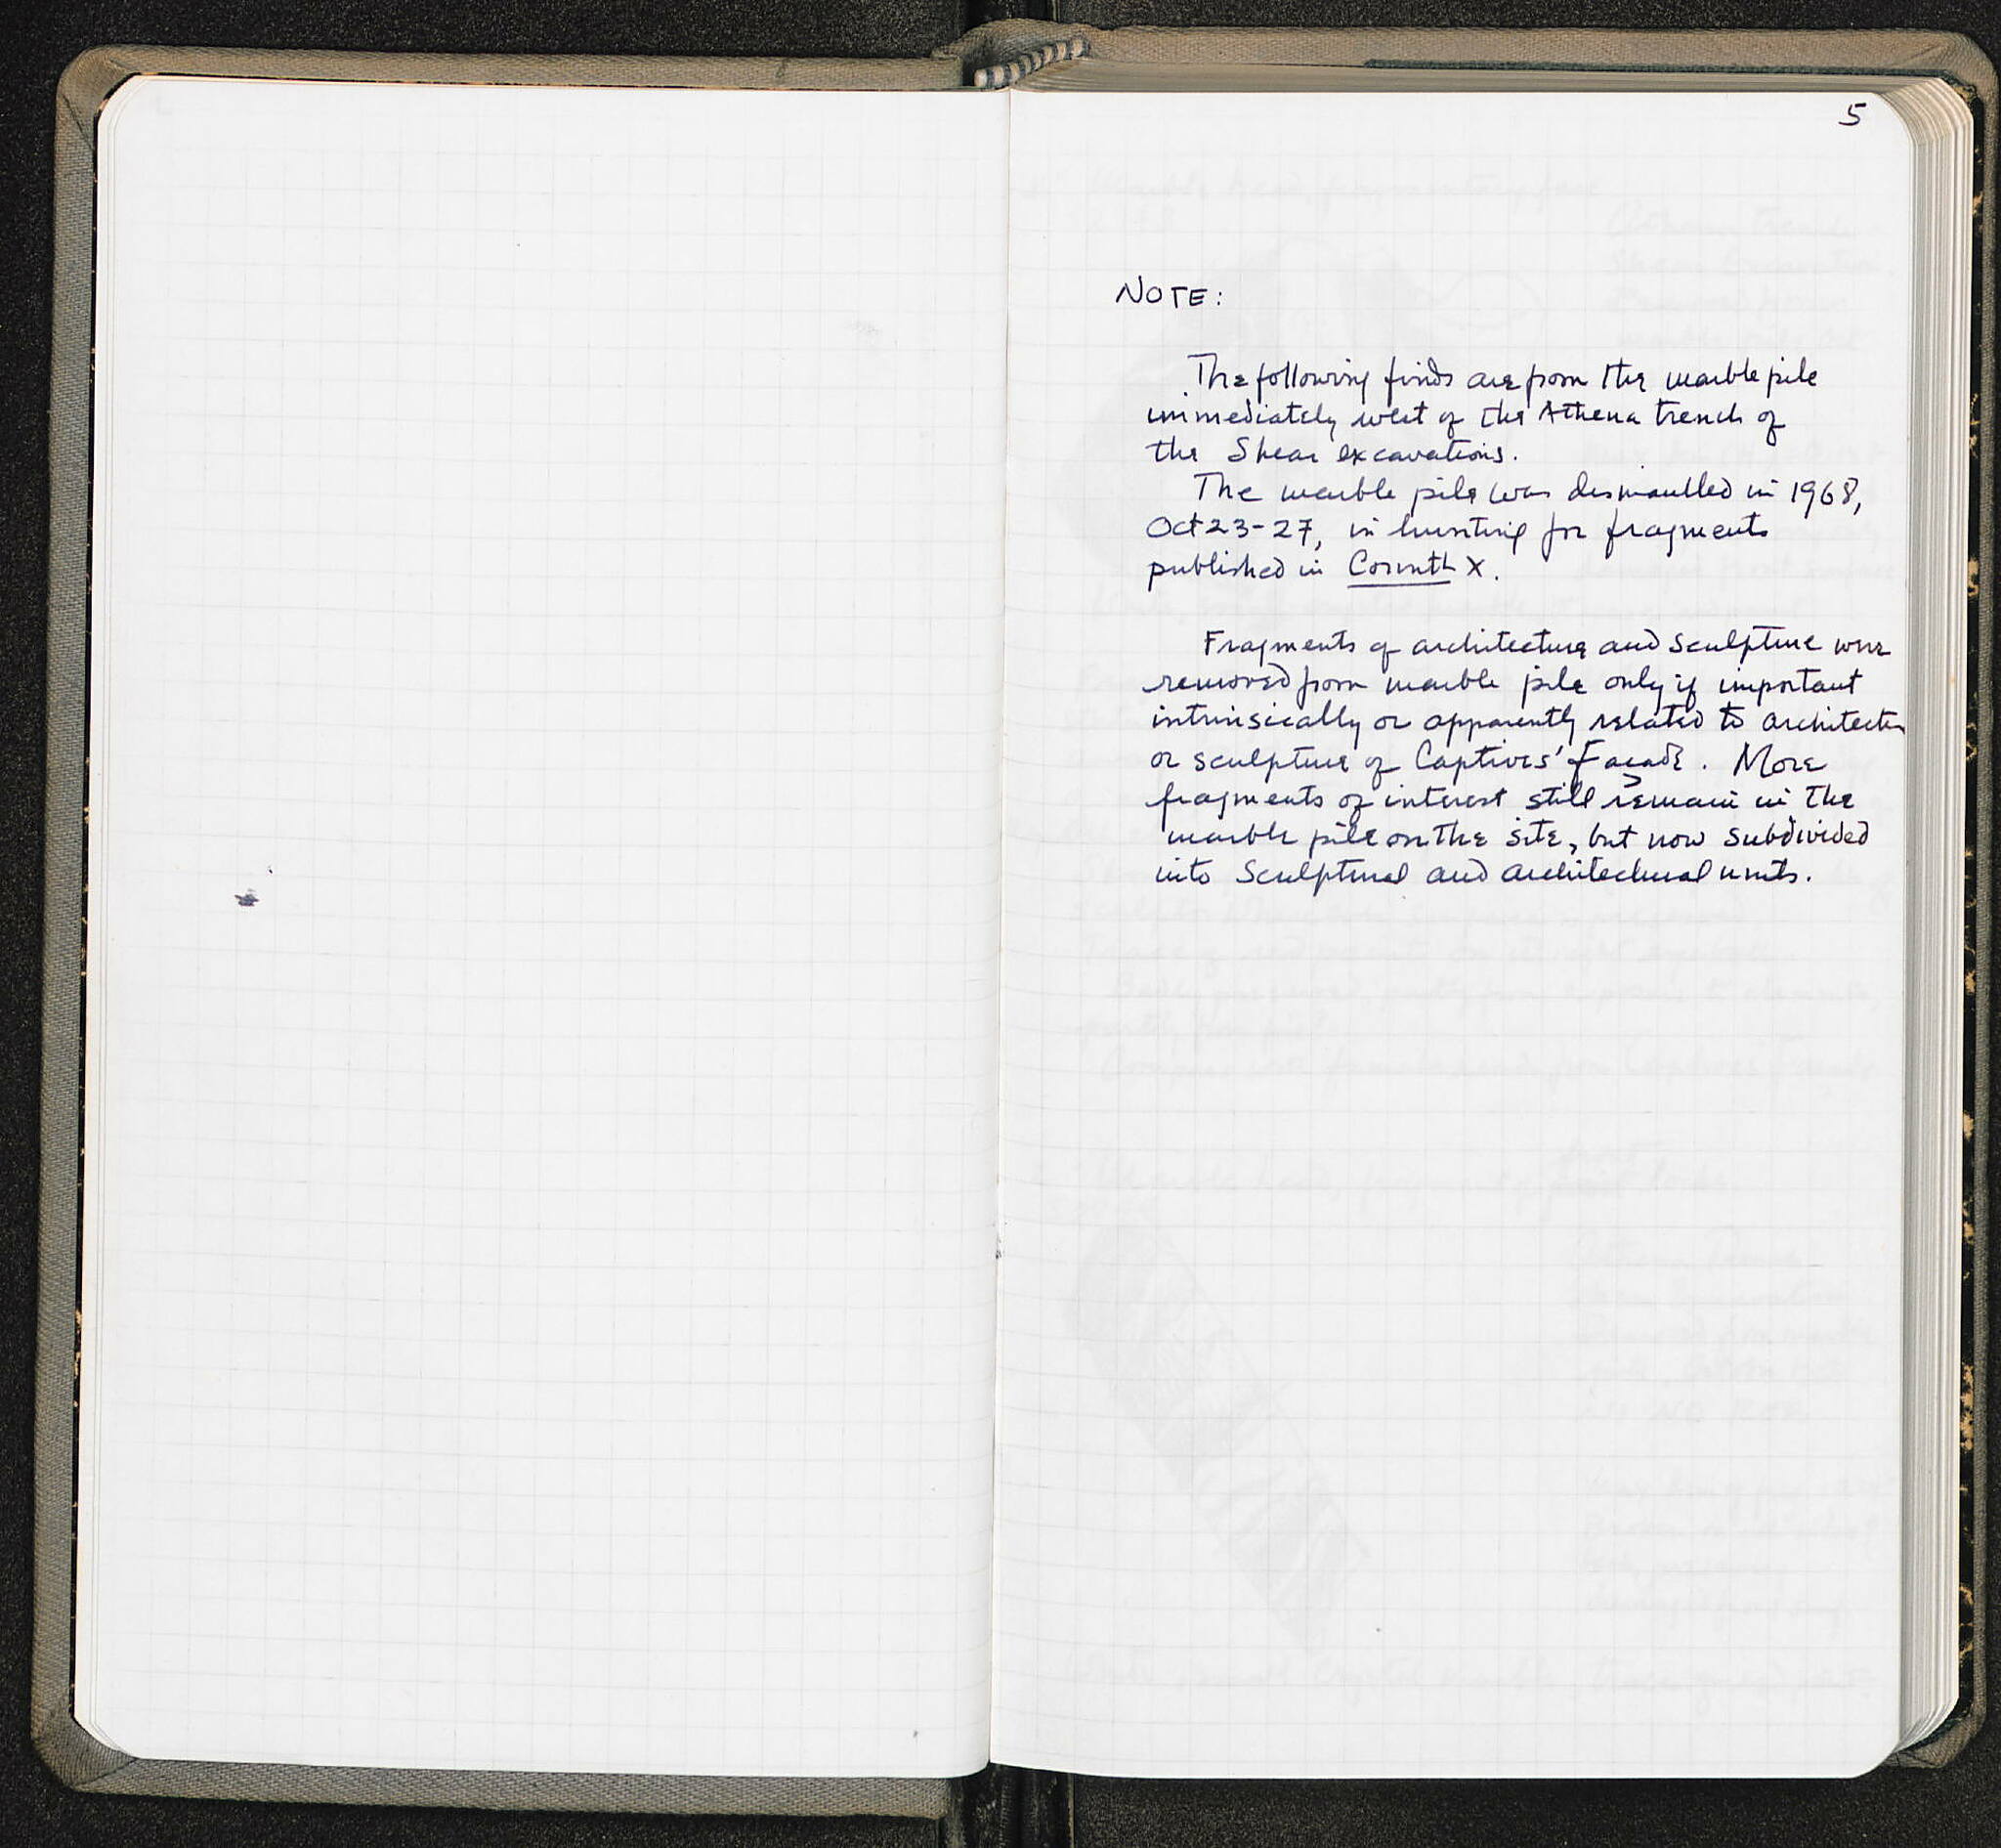 5
NOTE:
The following finds are from the marble pile
immediately west of the Athena trench of
the Shear excavations.
The marble pile was dismantled in 1968,
Oct 23-27, in hunting for fragments
published in Corinth X.
Fragments of architecture and sculpture were
removed from marble pile only if important
intrinsically or apparently related to architectu
or sculpture of Captives' Façade. More
fragments of interest still remain in the
marble pile on the site, but now subdivided
into Sculptural and architectural units.